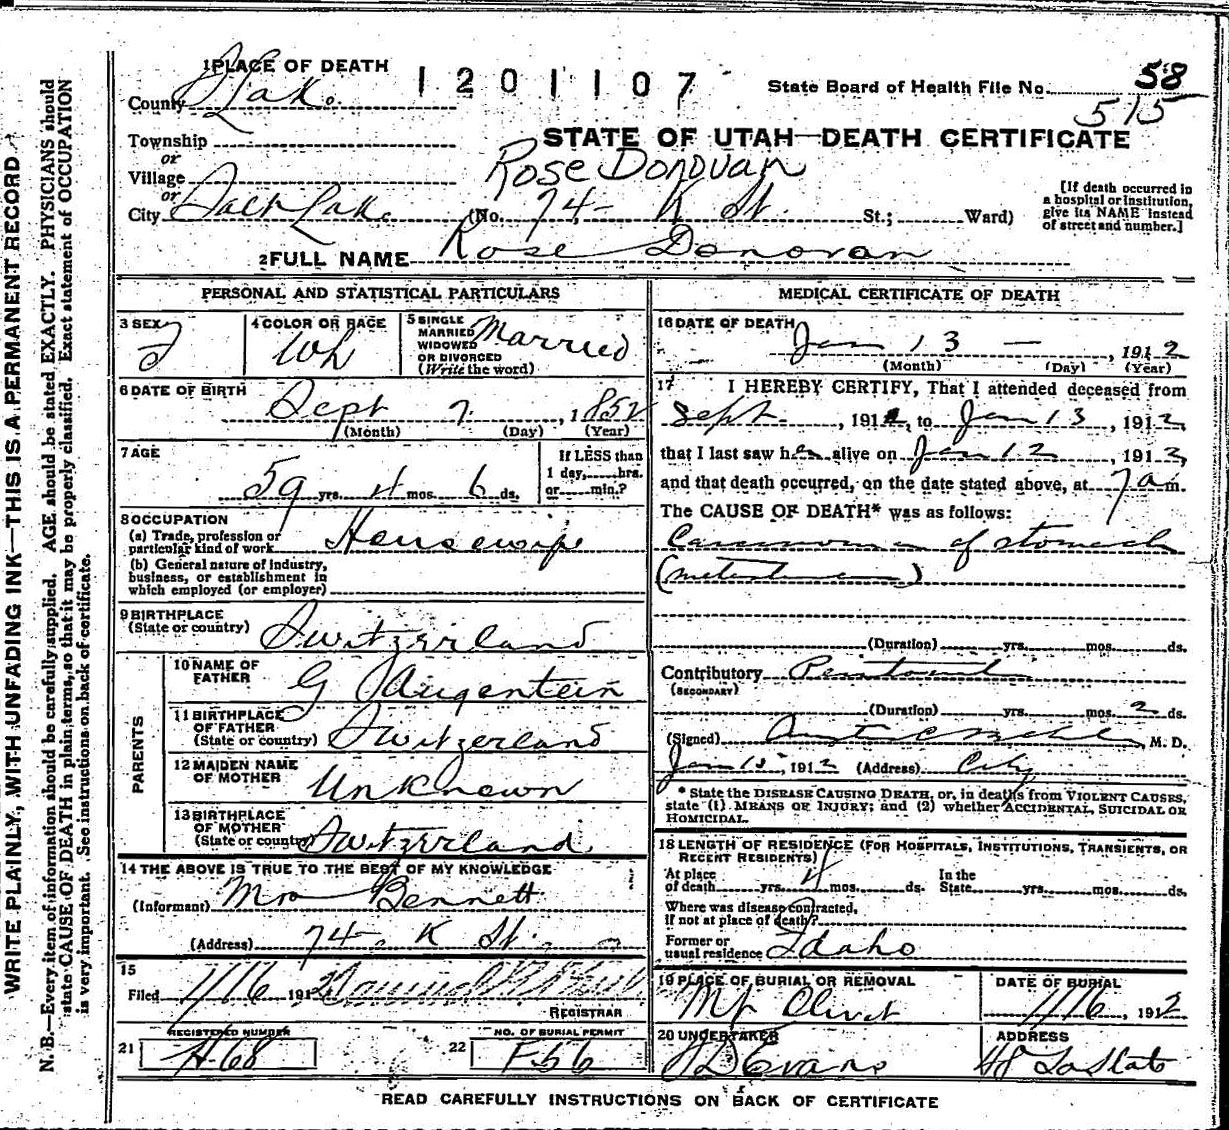 1 PLACE OF DEATH
1201107
State Board of Health File No. 58
515
County S Lake
STATE OF UTAH—DEATH CERTIFICATE
Township
or
Village
Rose Donovan
or
City Salt Lake (No. 74- K St. St.; Ward)
[If death occurred in a hospital or institution, give its NAME instead of street and number.]
2 FULL NAME Rose Donovan
PERSONAL AND STATISTICAL PARTICULARS
3 SEX F
4 COLOR OR RACE Wh
5 SINGLE MARRIED WIDOWED OR DIVORCED (Write the word) Married
6 DATE OF BIRTH
Sept 7, 1852
(Month) (Day) (Year)
7 AGE
59 yrs. 4 mos. 6 ds.
If LESS than 1 day, hrs. or min.?
8 OCCUPATION
(a) Trade, profession or particular kind of work Housewife
(b) General nature of industry, business, or establishment in which employed (or employer)
9 BIRTHPLACE
(State or country) Switzerland
PARENTS
10 NAME OF FATHER G Augentein
11 BIRTHPLACE OF FATHER (State or country) Switzerland
12 MAIDEN NAME OF MOTHER Unknown
13 BIRTHPLACE OF MOTHER (State or country) Switzerland
14 THE ABOVE IS TRUE TO THE BEST OF MY KNOWLEDGE
(Informant) Mrs Bennett
(Address) 74- K St.
15
Filed 1/16 1912
REGISTRAR
21 REGISTERED NUMBER H68
22 NO. OF BURIAL PERMIT F56
MEDICAL CERTIFICATE OF DEATH
16 DATE OF DEATH
Jan 13 — , 1912
(Month) (Day) (Year)
17 I HEREBY CERTIFY, That I attended deceased from
Sept , 1911, to Jan 13 1912,
that I last saw her alive on Jan 12, 1912,
and that death occurred, on the date stated above, at 7 a m.
The CAUSE OF DEATH* was as follows:
Carcinoma of stomach
(Duration) yrs. mos. ds.
Contributory
(SECONDARY)
(Duration) yrs. mos. 2 ds.
(Signed) M. D.
Jan 15, 1912 (Address) City
* State the DISEASE CAUSING DEATH, or, in deaths from VIOLENT CAUSES, state (1) MEANS OF INJURY; and (2) whether ACCIDENTAL, SUICIDAL OR HOMICIDAL.
18 LENGTH OF RESIDENCE (FOR HOSPITALS, INSTITUTIONS, TRANSIENTS, OR RECENT RESIDENTS)
At place of death yrs. 4 mos. ds. In the State yrs. mos. ds.
Where was disease contracted, If not at place of death?
Former or usual residence Idaho
19 PLACE OF BURIAL OR REMOVAL
Mt Olivet
DATE OF BURIAL
1/16, 1912
20 UNDERTAKER
Evans
ADDRESS
48 So State
READ CAREFULLY INSTRUCTIONS ON BACK OF CERTIFICATE
WRITE PLAINLY, WITH UNFADING INK—THIS IS A PERMANENT RECORD
N. B.—Every item of information should be carefully supplied. AGE should be stated EXACTLY. PHYSICIANS should
state CAUSE OF DEATH in plain terms, so that it may be properly classified. Exact statement of OCCUPATION
is very important. See instructions on back of certificate.